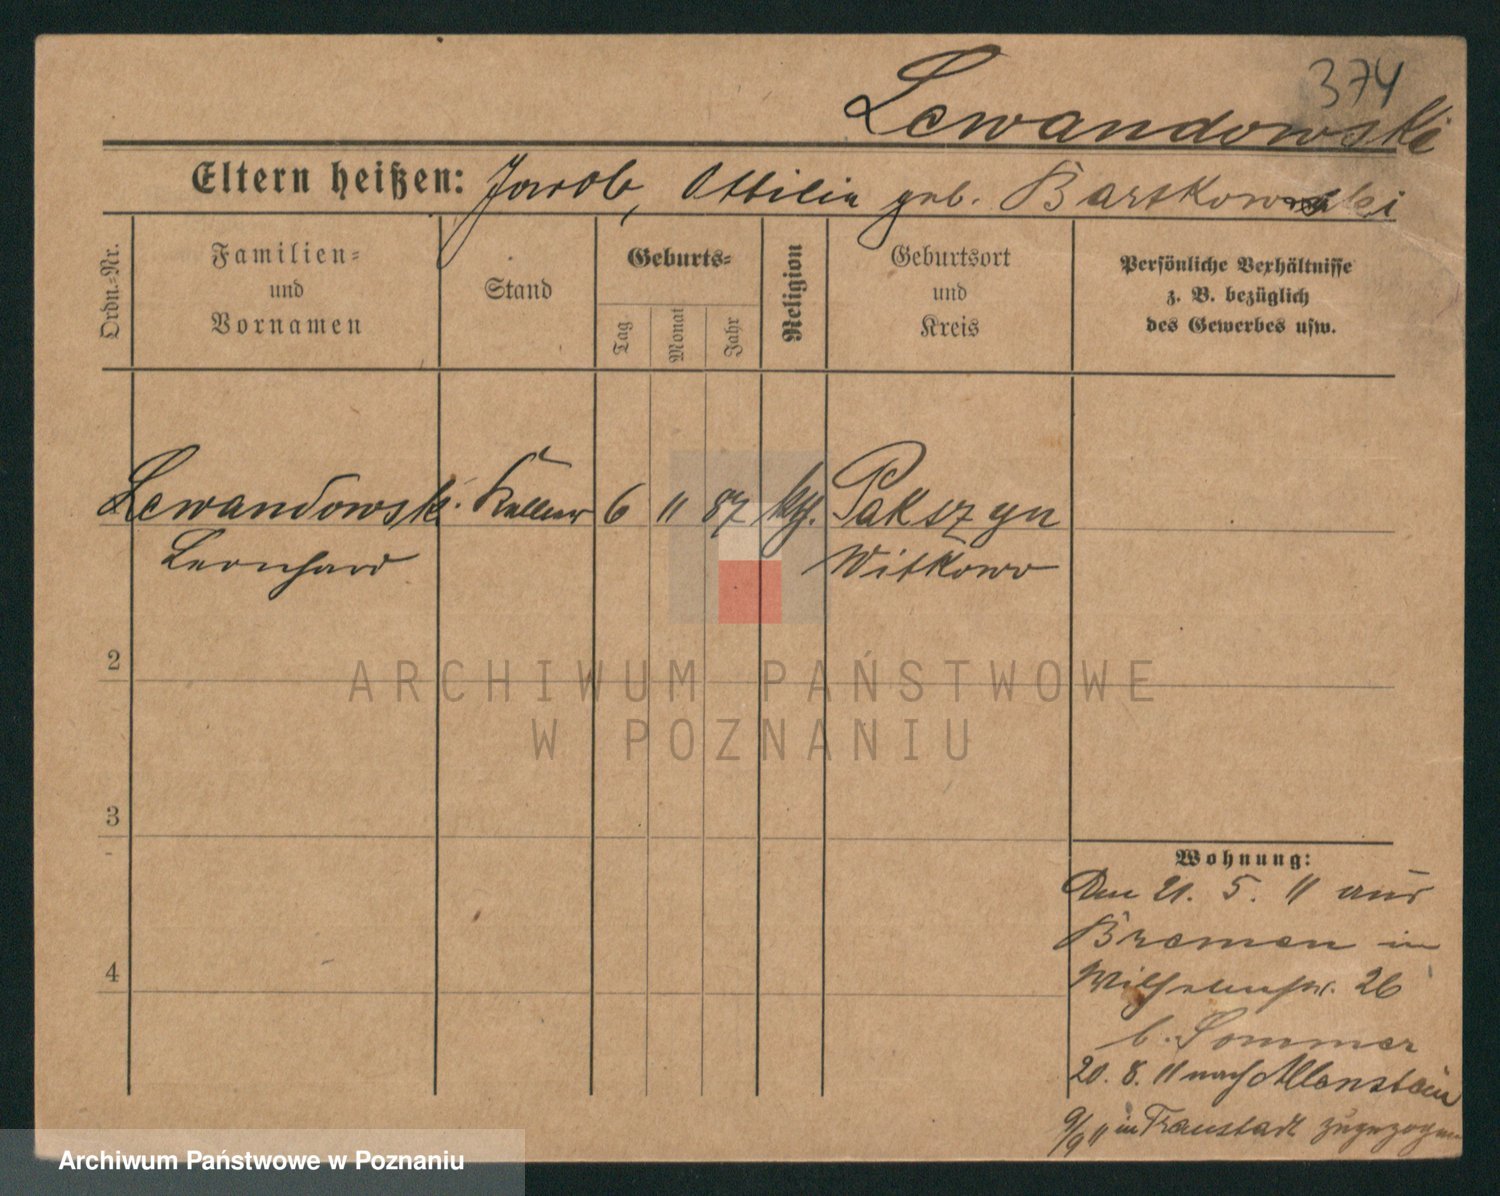 374
Lewandowski
Eltern heißen: Jacob, Ottilia geb. Bartkowski
Ordn.-Nr.
Familien-
und
Vornamen
Stand
Geburts-
Tag
Monat
Jahr
Religion
Geburtsort
und
Kreis
Persönliche Verhältnisse
z. B. bezüglich
des Gewerbes usw.
Lewandowski Kellner 6 11 87 kth. Pakszyn
Leonhard Witkowo
2
3
4
Wohnung:
Den 21. 5. 11 aus
Bremen in
Wilhelmstr. 26
b. Sommer
20. 8. 11 nach Allenstein
9/9 11 in Fraustadt zugezogen
ARCHIWUM PAŃSTWOWE
W POZNANIU
Archiwum Państwowe w Poznaniu